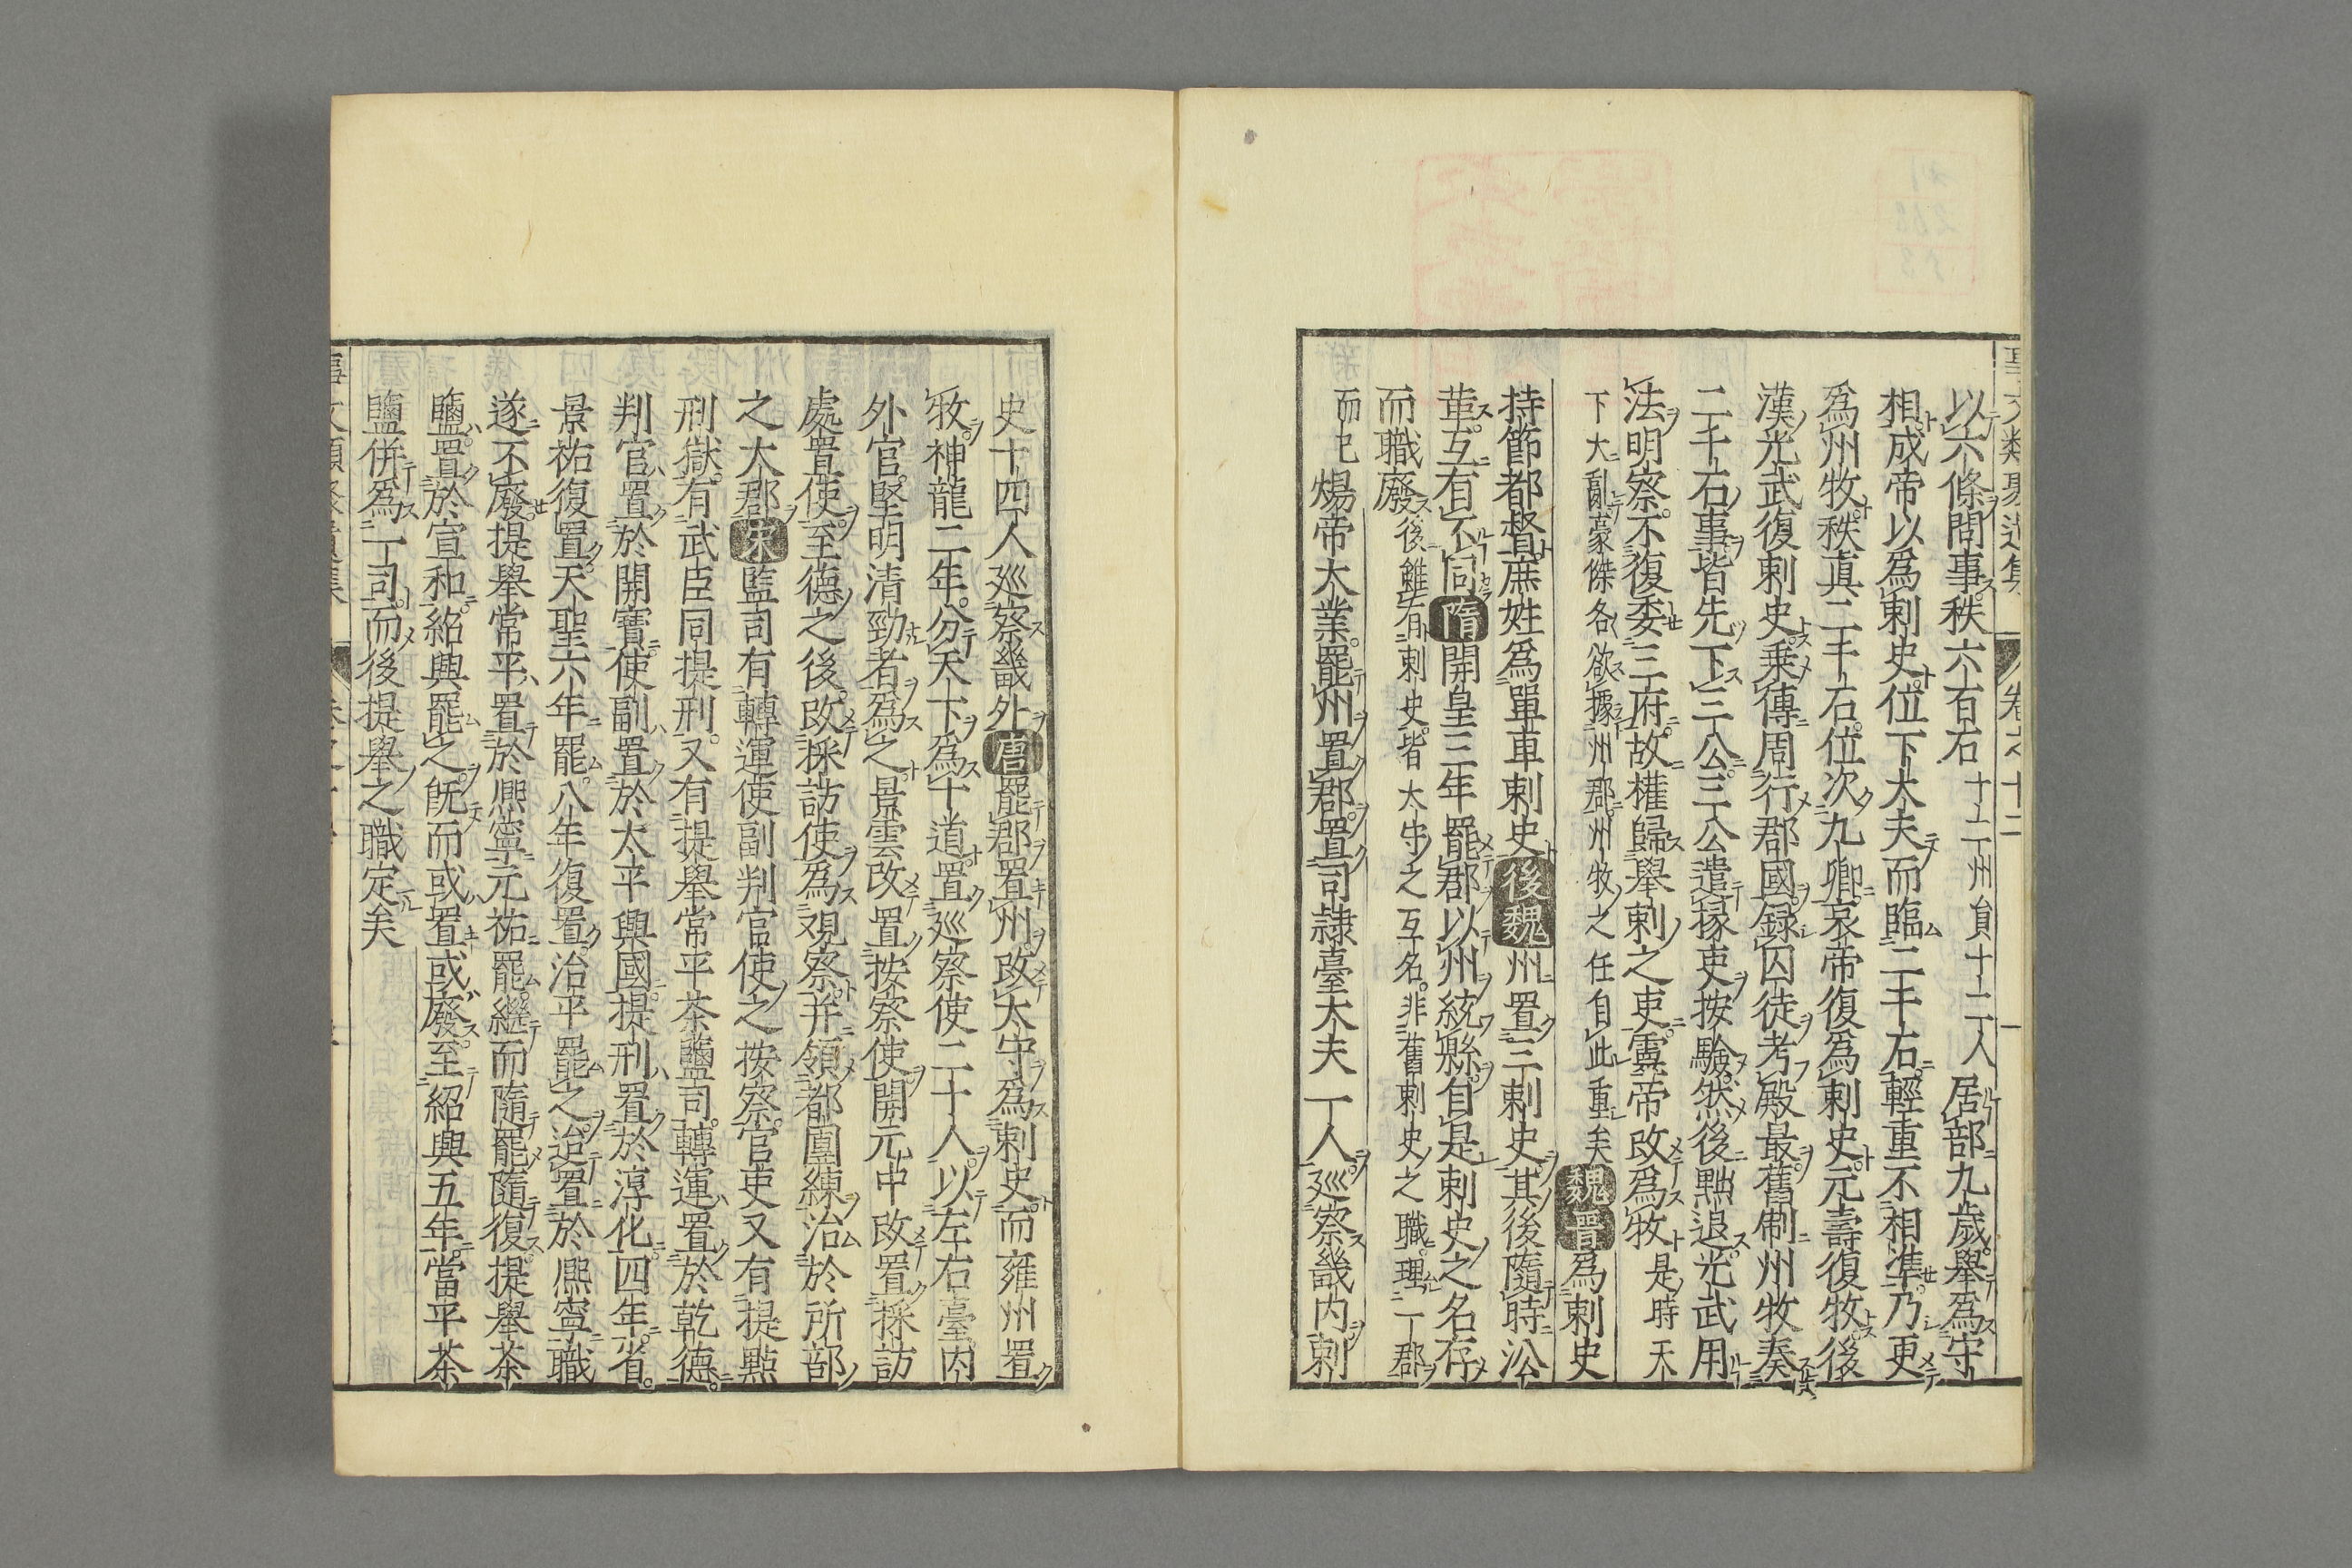 以六條問事秩六百石十二州員十二人居部九歲舉爲守
相成帝以爲剌史位下大夫而臨二千石輕重不相準乃更
爲州牧秩眞二千石位次九卿哀帝復爲剌史元壽復牧後
漢光武復剌史乗傳周行郡國録囚徒考殿最舊制州牧奏
二千石事皆先下三公三公遣掾吏按驗然後黜退光武用
法明察不復委三府故權歸舉剌之吏靈帝改爲牧是時天
下大亂豪傑各欲據州郡州牧之任自此重矣魏晋爲剌史
持節都督庶姓爲單車剌史後魏州置三剌史其後隨時沿
革互有不同隋開皇三年罷郡以州統縣自是剌史之名存
而職廢後雖有剌史皆太守之互名非舊剌史之職理一郡
而已煬帝大業罷州置郡置司隷臺大夫一人廵察畿内剌
史十四人廵察畿外唐罷郡置州改太守爲剌史而雍州置
牧神龍二年分天下爲十道置廵察使二十人以左右臺内
外官堅明清勁者爲之景雲改置按察使開元中改置採訪
處置使至德之後改採訪使爲觀察并領都團練治於所部
之大郡宋監司有轉運使副判官使之按察官吏又有提點
刑獄有武臣同提刑又有提舉常平茶鹽司轉運置於乾德
判官置於開寶使副置於太平興國提刑置於淳化四年省
景祐復置天聖六年罷八年復置治平罷之迨置於熈寧職
遂不廢提舉常平置於熈寧元祐罷繼而隨罷隨復提舉茶
鹽置於宣和紹興罷之旣而或置或廢至紹興五年當平茶
鹽併爲一司而後提舉之職定矣